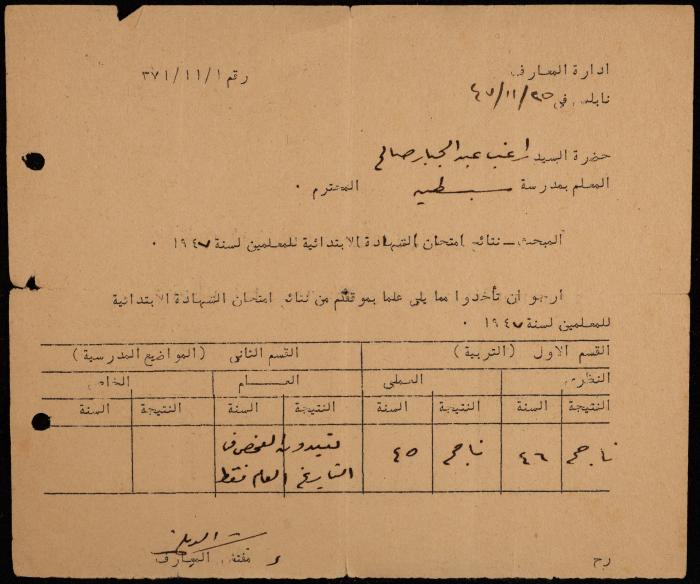 ادارة المعارف
رقم ٣٧١/١١/١
نابلس في ٤٧/١١/٢٥
حضرة السيد راغب عبد الجبار صالح
المعلم بمدرسة سبسطيه المحترم ٠
المبحث ــ نتائج امتحان الشهادة الابتدائية للمعلمين لسنة ١٩٤٧ ٠
ارجو ان تأخذوا مما يلي علما بموقفكم من نتائج امتحان الشهادة الابتدائية
للمعلمين لسنة ١٩٤٧ ٠
القسم الاول (التربية) القسم الثاني (المواضيع المدرسية)
النظري العملي العـــام الخاص
النتيجة السنة النتيجة السنة النتيجة السنة النتيجة السنة
ناجح ٤٦ ناجح ٤٥ تعيدون الفحص في
التاريخ العام فقط
مفتش المعارف
رح